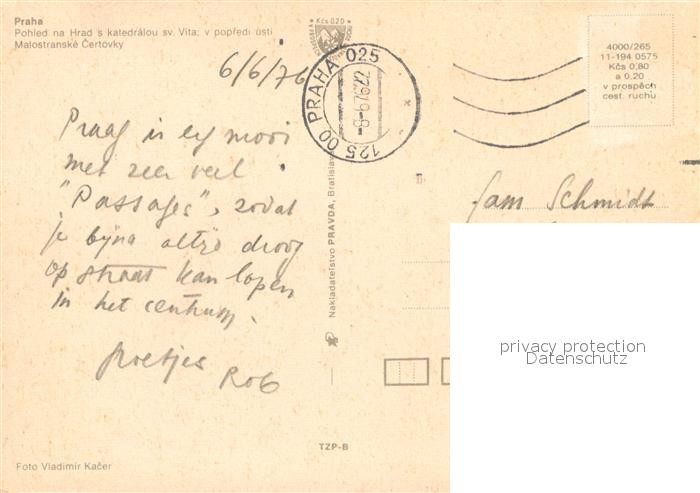 Praha
Pohled na Hrad s katedrálou sv. Víta; v popředí ústí
Malostranské Čertovky
Kčs 0,20
6/6/76
PRAHA 025
125 00
4000/265
11-194 0575
Kčs 0,80
a 0,20
v prospěch
cest. ruchu
Praag is erg mooi
met zeer veel
"Passages", zodat
je bijna altijd droog
op straat kan lopen
in het centrum.
Groetjes
Rob
Nakladatelstvo PRAVDA, Bratislava
Schmidt
privacy protection
Datenschutz
TZP-B
Foto Vladimír Kačer